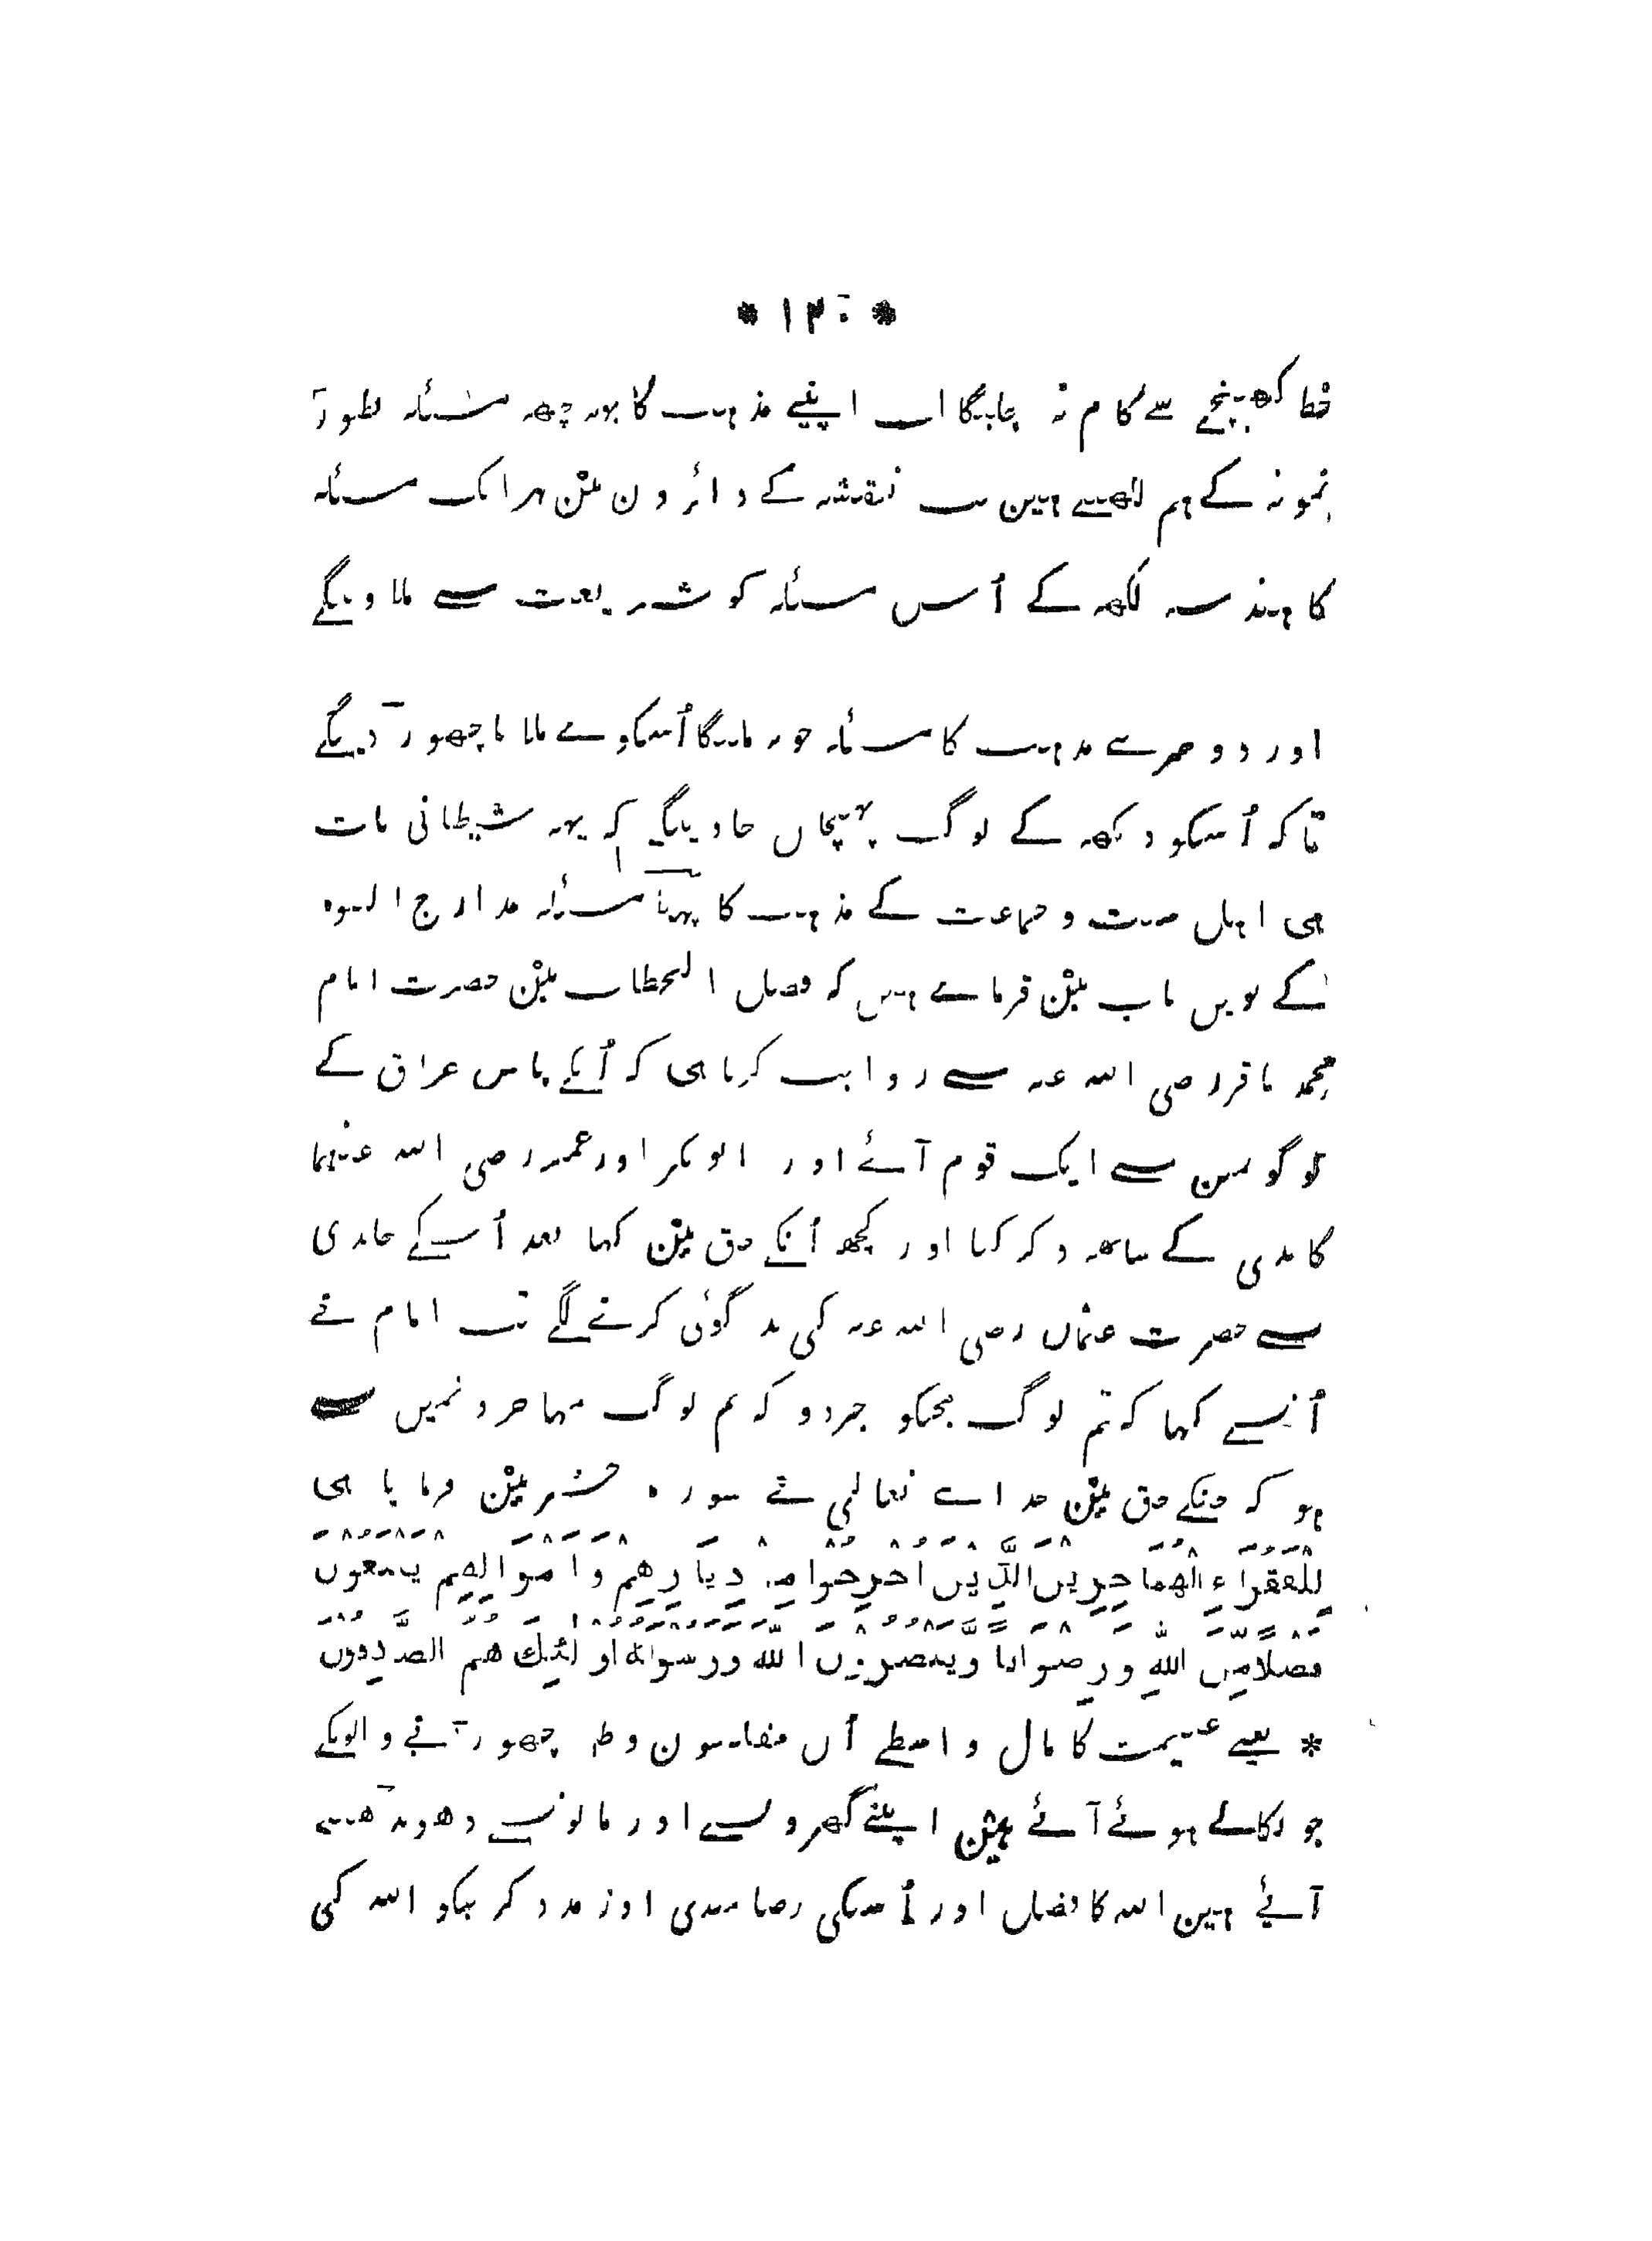 * ۱۳۰ *
خط کھینچنے سے کام نہ چلیگا اب اپنے مذہب کا یہہ چھہ مسئلہ بطور
نمونہ کے ہم لکھتے ہین سب نقشہ کے دائرون مین ہر ایک مسئلہ
کا ہندسہ لکھہ کے اُس مسئلہ کو شریعت سے ملا دینگے
اور دوسرے مذہب کا مسئلہ جو نہ ملیگا اُسکو بے ملا چھوڑ دینگے
تاکہ اُسکو دیکھہ کے لوگ پہچان جاوینگے کہ یہہ شیطانی بات
ہی اہل سنت و جماعت کے مذہب کا پہلا مسئلہ مدارج النبوہ
کے نویں باب مین فرماتے ہیں کہ فصل الخطاب مین حضرت امام
محمد باقر رضی اللہ عنہ سے روایت کرتا ہی کہ اُنکے پاس عراق کے
لوگونمین سے ایک قوم آئے اور ابوبکر اور عمر رضی اللہ عنہما
کا بدی کے ساتھہ ذکر کیا اور کچھ اُنکے حق مین کہا بعد اُسکے جلدی
سے حضرت عثمان رضی اللہ عنہ کی بدگوئی کرنے لگے تب امام نے
اُنسے کہا کہ تم لوگ مجکو خبر دو کہ تم لوگ مہاجرونمیں سے
ہو کہ جنکے حق مین خداے تعالی نے سورہ حشر مین فرمایا ہی
لِلْفُقَرَاءِ الْمُهَاجِرِينَ الَّذِينَ اُخْرِجُوا مِنْ دِيَارِهِمْ وَاَمْوَالِهِمْ يَبْتَغُونَ
فَضْلًا مِنَ اللهِ وَرِضْوَانًا وَيَنْصُرُونَ اللهَ وَرَسُولَهُ اُولٰئِكَ هُمُ الصَّادِقُونَ
* یعنے غنیمت کا مال واسطے اُن مفلسون وطن چھوڑنے والونکے
جو نکالے ہوئے آئے ہین اپنے گھرونسے اور مالونسے ڈھونڈھتے
آئے ہین اللہ کا فضل اور اُسکی رضامندی اور مدد کرنیکو اللہ کی